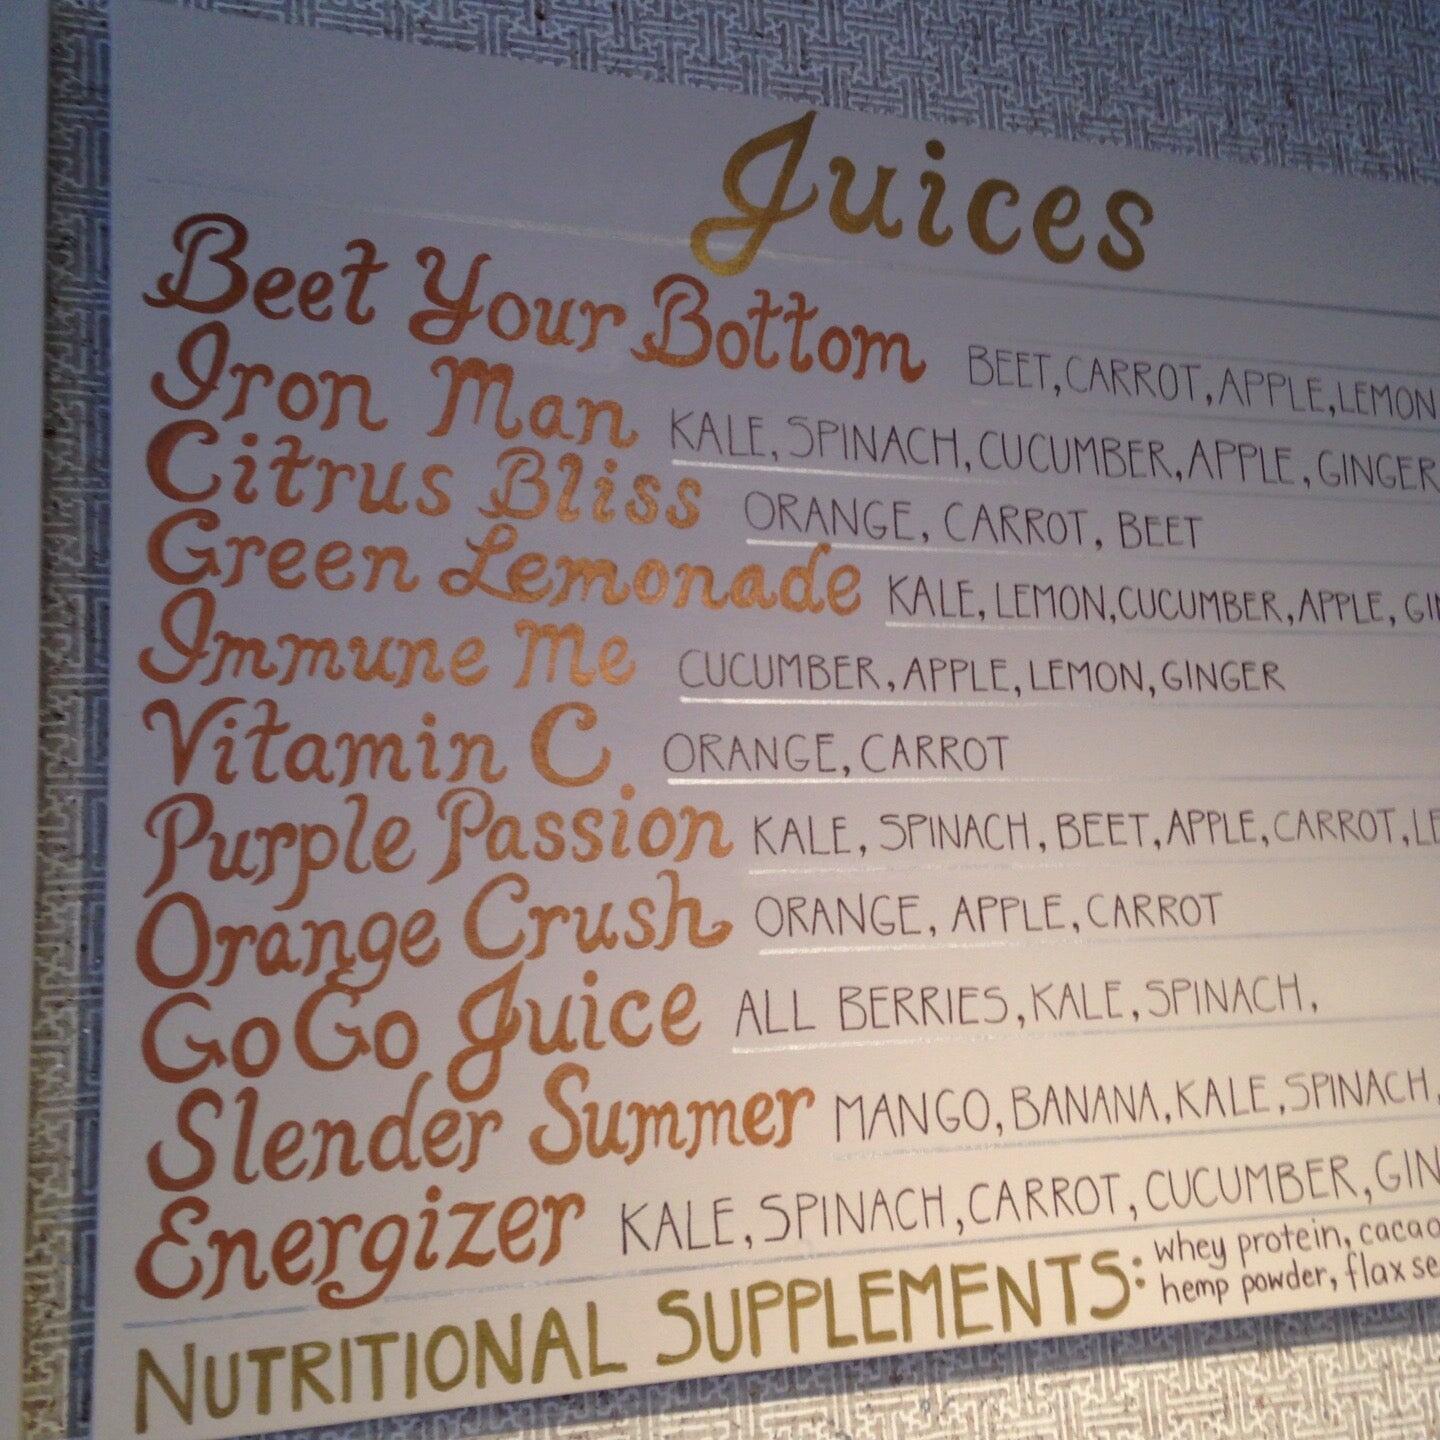 Juices
Beet Your Bottom BEET, CARROT, APPLE, LEMON
Iron Man KALE, SPINACH, CUCUMBER, APPLE, GINGER
Citrus Bliss ORANGE, CARROT, BEET
Green Lemonade KALE, LEMON, CUCUMBER, APPLE, GIN
Immune Me CUCUMBER, APPLE, LEMON, GINGER
Vitamin C ORANGE, CARROT
Purple Passion KALE, SPINACH, BEET, APPLE, CARROT, LE
Orange Crush ORANGE, APPLE, CARROT
Go Go Juice ALL BERRIES, KALE, SPINACH,
Slender Summer MANGO, BANANA, KALE, SPINACH,
Energizer KALE, SPINACH, CARROT, CUCUMBER, GIN
NUTRITIONAL SUPPLEMENTS: whey protein, cacao
hemp powder, flax se